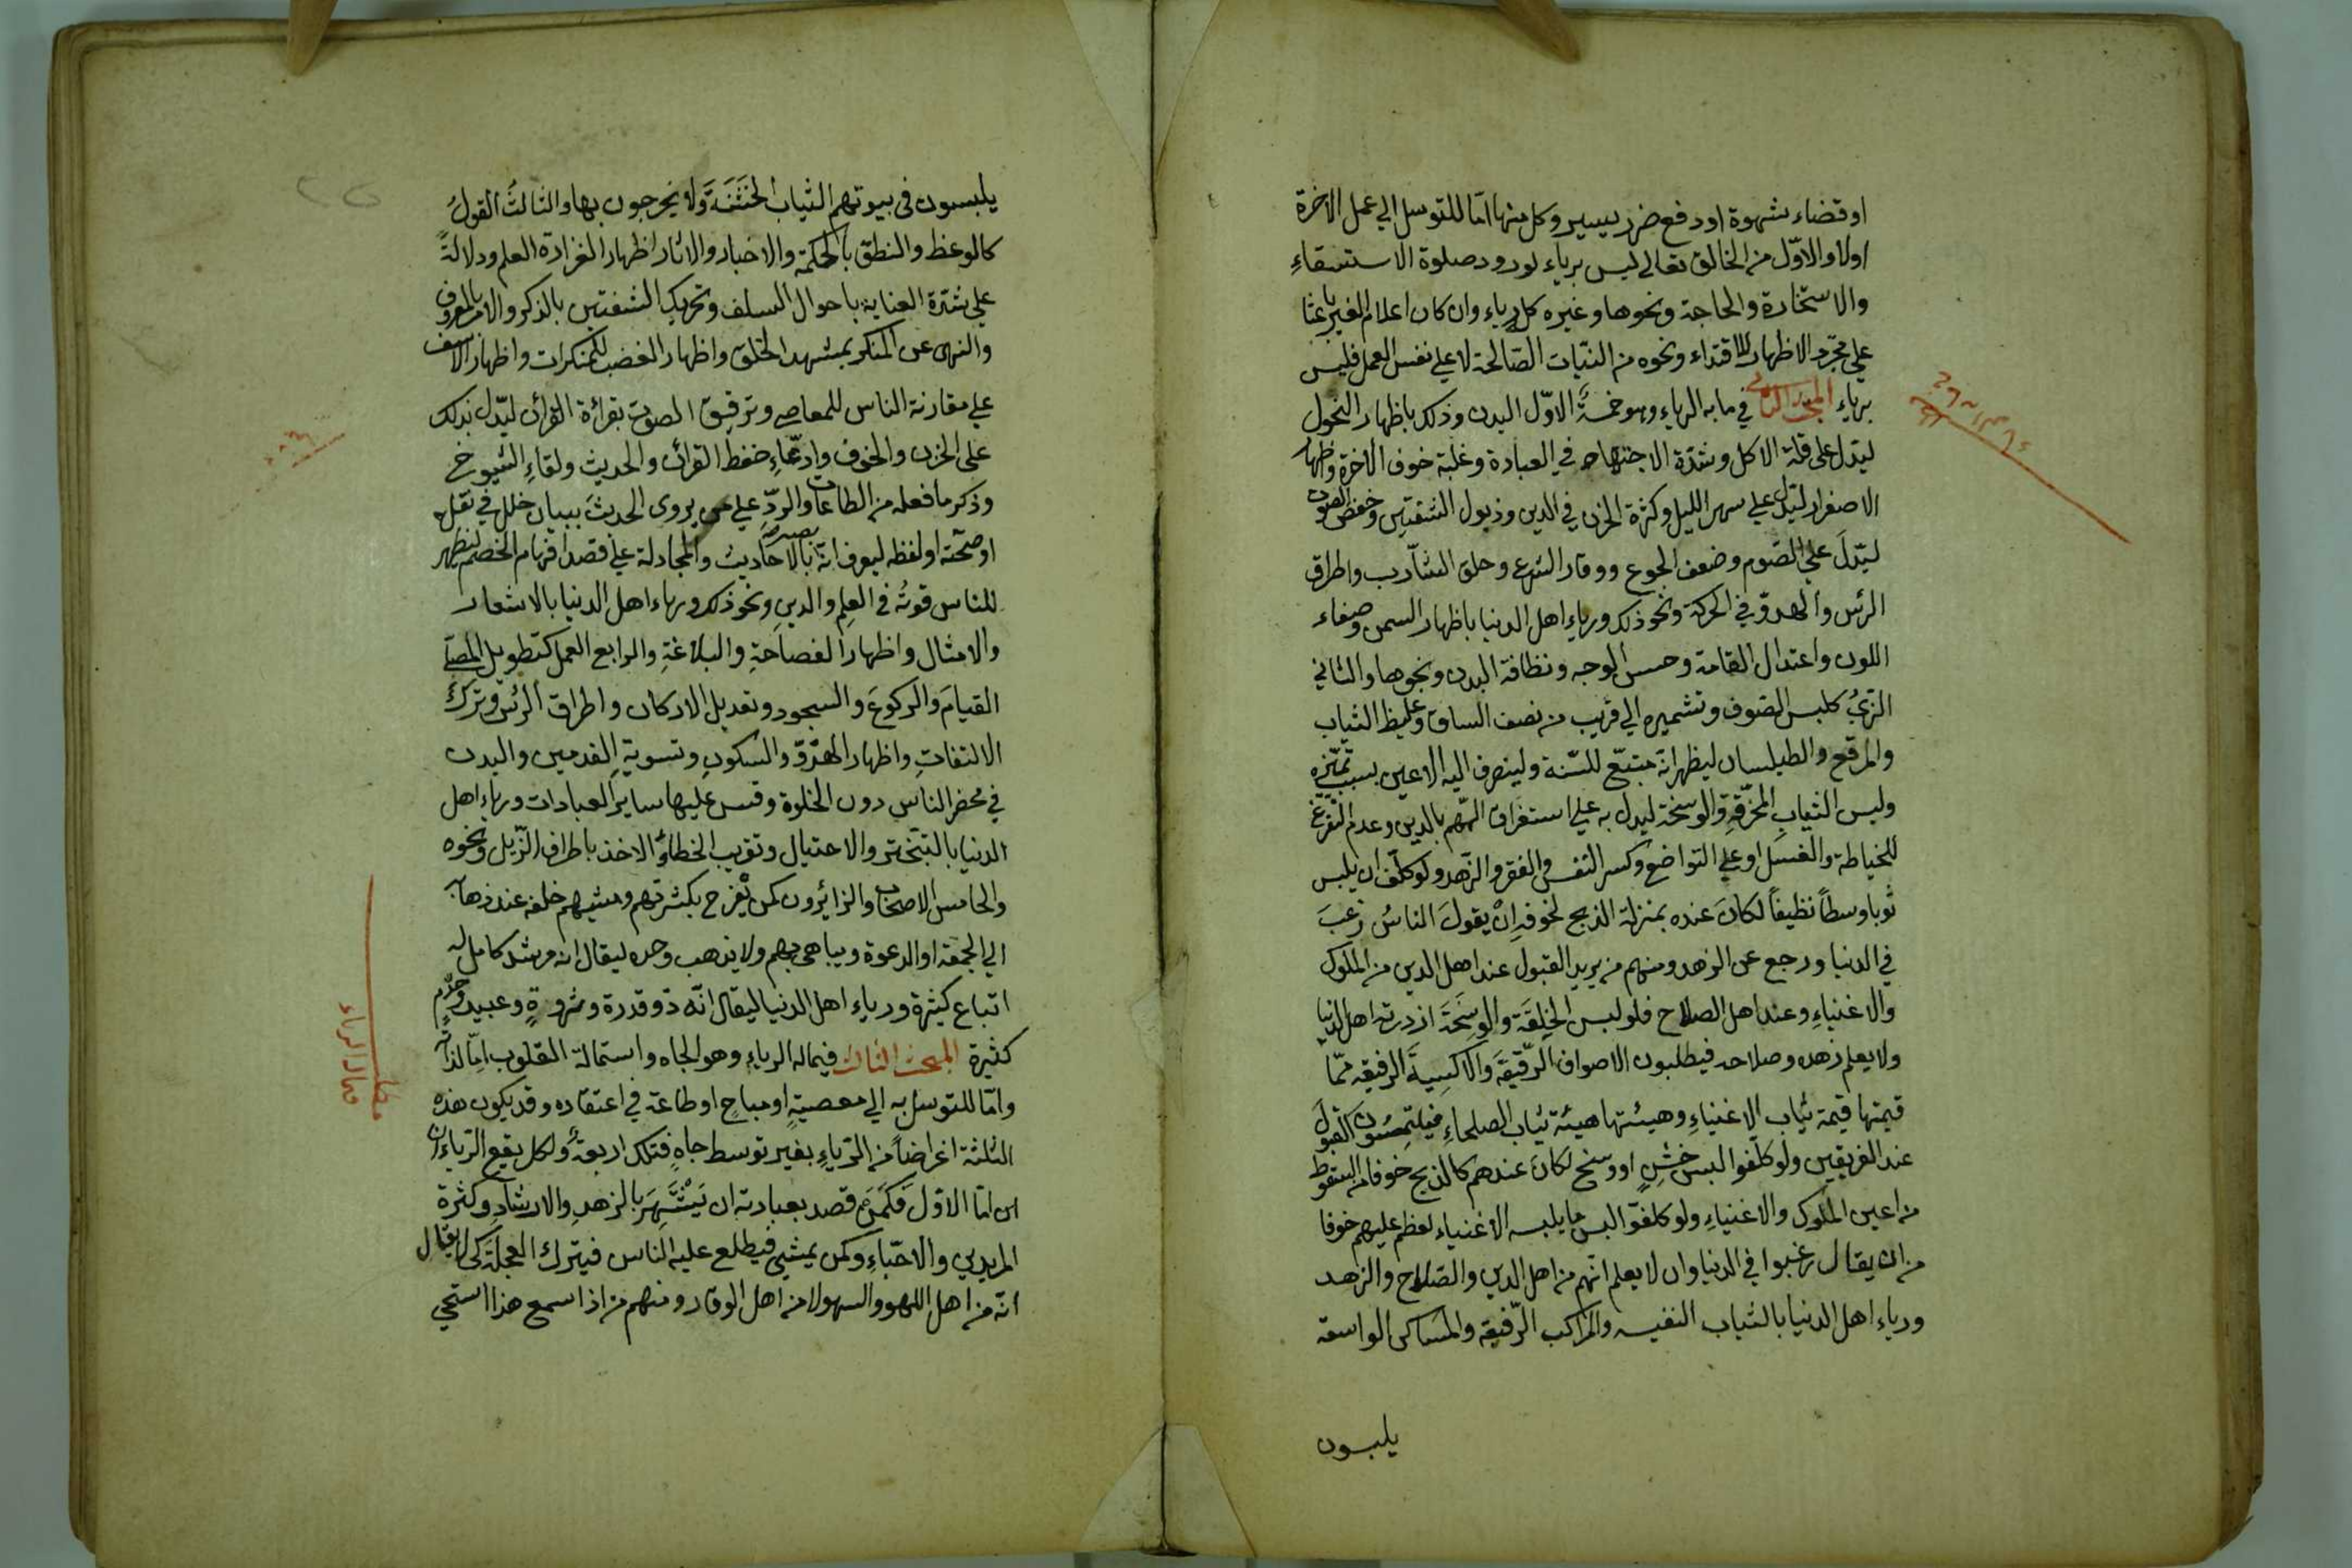 او قضاء شهوة او دفع ضرر يسير وكل منها امّا للتوسل الي عمل الاخرة
اولا والاوّل من الخالق تعالى ليس برياء لورود صلوة الاستسقاءِ
والاستخارة والحاجة ونحوها وغيره كل رياء وان كان اعلام الغير باعثا
علي مجرّد الاظهار للاقتداء ونحوه من النيّات الصّالحة لا علي نفس العمل فليس
برياء المبحث الثاني في ما به الرياء وهو خمسةٌ الاوّل البدن وذلك باظهار النحول
ليدّل على قلة الاكل وشدّة الاجتهاد في العبادة وغلبة خوف الاخرة واظهار
الاصفرار ليدّل علي سهر الليل وكثرة الحزن في الدين وذبول الشفتين وخفض الصوت
ليدّلَ على الصّوم وضعف الجوع ووقار الشرع وحلق الشّارب واطراق
الرئس والهدوّ في الحركة ونحو ذلك ورياء اهل الدنيا باظهار السمن وصفاء
اللون واعتدال القامة وحسن الوجه ونظافة البدن ونحوها والثاني
الزيُّ كلبس الصّوف وتشميره الي قريب من نصف الساق وغليظ الثياب
والمرقع والطيلسان ليظهر انّه متبّع للسّنة ولينصرف اليه الاعين بسبب تميّزه
ولبس الثيابِ المخرّقةِ والوسخة ليدل به علي استغراق الهّم بالدين وعدم التفرّغ
للخياطة والغسل او علي التواضع وكسر النفس والفقر والزّهد ولو كلّف ان يلبس
ثوبا وسطاً نظيفاً لكانَ عنده بمنزلة الذبح لخوفهِ انْ يقولَ الناسُ رغبَ
في الدنيا ورجع عن الزهد ومنهم من يريد القبول عند اهل الدين من الملوك
والاغنياءِ وعند اهل الصلاح فلو لبس الخلِقَة والوسِخَة ازدرته اهل الدنيا
ولا يعلم زهده وصلاحه فيطلبون الاصواف الرّقيقةَ والاكسيةَ الرفيقة ممّا
قيمتها قيمة ثياب الاغنياءِ وهيئتها هيئة ثياب الصلحاءِ فيلتمسون القبولَ
عند الفريقين ولو كلّفوا لبس خشنٍ او وسخ لكانَ عندهم كالذبح خوفا من السقوط
من اعين الملوك والاغنياءِ ولو كلفوّا لبس ما يلبسه الاغنياء لعظم عليهم خوفا
من ان يقال رغبوا في الدنيا وان لا يعلم انّهم من اهل الدين والصّلاح والزاهد
ورياء اهل الدنيا بالثياب النفيسه والمراكب الرّفيقة والمساكن الواسعة
يلبسون
يلبسون في بيوتهم الثياب الخشنَةَ ولا يخرجون بها والثالثُ القولُ
كالوعظ والنطق بالحكمة والاخبار والاثار اظهارا لغزارة العلم ودلالةً
علي شدّة العناية باحوال السلف وتحريك الشفتين بالذكر والامر بالمعروف
والنهى عن المنكر بمشهد الخلق واظهار الغضب للمنكرات واظهار الاسف
علي مقارنة الناس للمعاصي وترقيق الصوت بقرائة القرأن ليدّل بذلك
على الحزن والخوف وادّعاءِ حفظ القرأن والحديث ولقاءِ الشيوخ
وذكر ما فعله من الطاعات والردِّ علي من يروى الحديثَ ببيان خلل في نقله
او صحّته او لفظه ليعرف انّه بصير بالاحاديث والمجادلة علي قصد افهام الخصم ليظهر
للناس قوتُه في العلمِ والدينِ ونحو ذلك ورياء اهل الدنيا بالاشعار
والامثال واظهار الفصاحةِ والبلاغةِ والرابع العمل كتطويل المصلّي
القيامَ والركوعَ والسجود وتعديل الاركان واطراق الرئس وتركَ
الالتفاتِ واظهار الهدّوّ والسّكونِ وتسوية القدمين واليدين
في محضر الناس دون الخلوة وقس عليها ساير العبادات ورياء اهل
الدنيا بالتبختر والاختيال وتقريب الخطا والاخذ باطراف الزّيل ونحوه
والخامس الاصحاب والزائرون كمن يفرح بكثرتهم ومشيهم خلفه عند ذهابه
الي الجمعة او الدعوة ويباهى بهم ولا يذهب وحده ليقال انه مرشد كامل له
اتباع كثيرة ورياء اهل الدنيا ليقال انّه ذو قدرة وثروةٍ وعبيد وخدّمٍ
كثيرة المبحث الثالث فيما له الرياء وهو الجاه واستمالة القلوب امّا لذاته
وامّا للتوسل به الي معصيةٍ او مباحِ او طاعة في اعتقاده وقد يكون هذه
الثلثة اغراضاً من الرّياءِ بغير توسط جاهٍ فتلك اربعةٌ ولكل يقع الرّياءان
امّا الاوّل فكمن قصد بعبادته ان يَشْتَهِرَ بالزهدِ والارشادِ وكثرة
المريدين والاحبّاءِ وكمن يمشي فيطلع عليه الناس فيترك العجلة كى لا يقال
انّه من اهل اللهو والسهو لا من اهل الوقار ومنهم من اذا سمع هذا استحيى